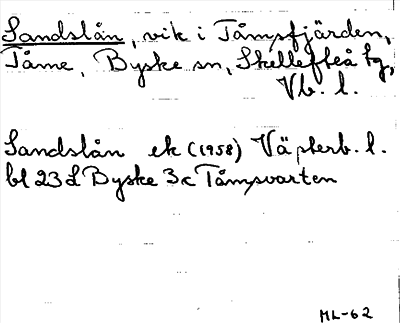 Sandslån, vik i Tåmpfjärden,
Tåme, Byske sn, Skellefteå tg,
Vb. l.
Sandslån ek (1958) Västerb. l.
bl 23 L Byske 3c Tåmpvarten
ML-62